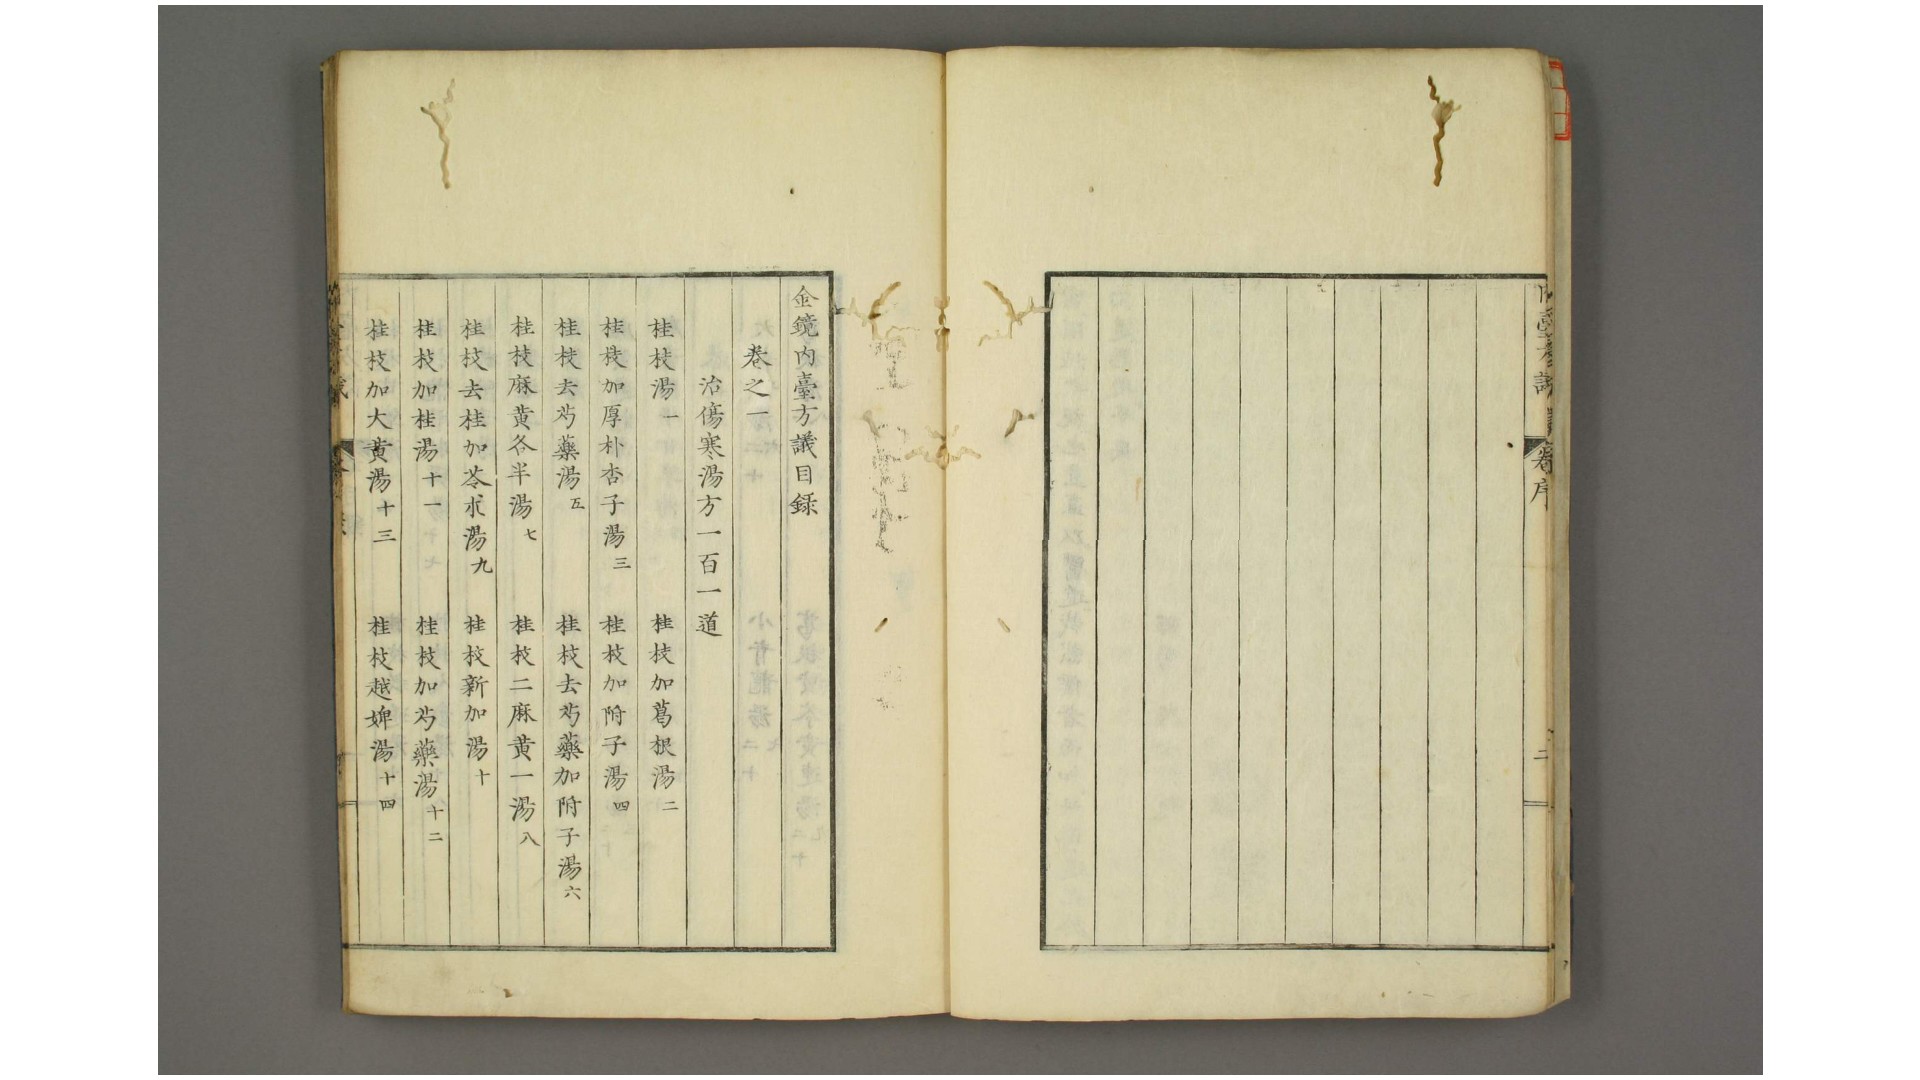 卷序
二
金鏡內臺方議目錄
卷之一
治傷寒湯方一百一道
桂枝湯一 桂枝加葛根湯二
桂枝加厚朴杏子湯三 桂枝加附子湯四
桂枝去芍藥湯五 桂枝去芍藥加附子湯六
桂枝麻黄各半湯七 桂枝二麻黄一湯八
桂枝去桂加苓朮湯九 桂枝新加湯十
桂枝加桂湯十一 桂枝加芍藥湯十二
桂枝加大黄湯十三 桂枝越婢湯十四